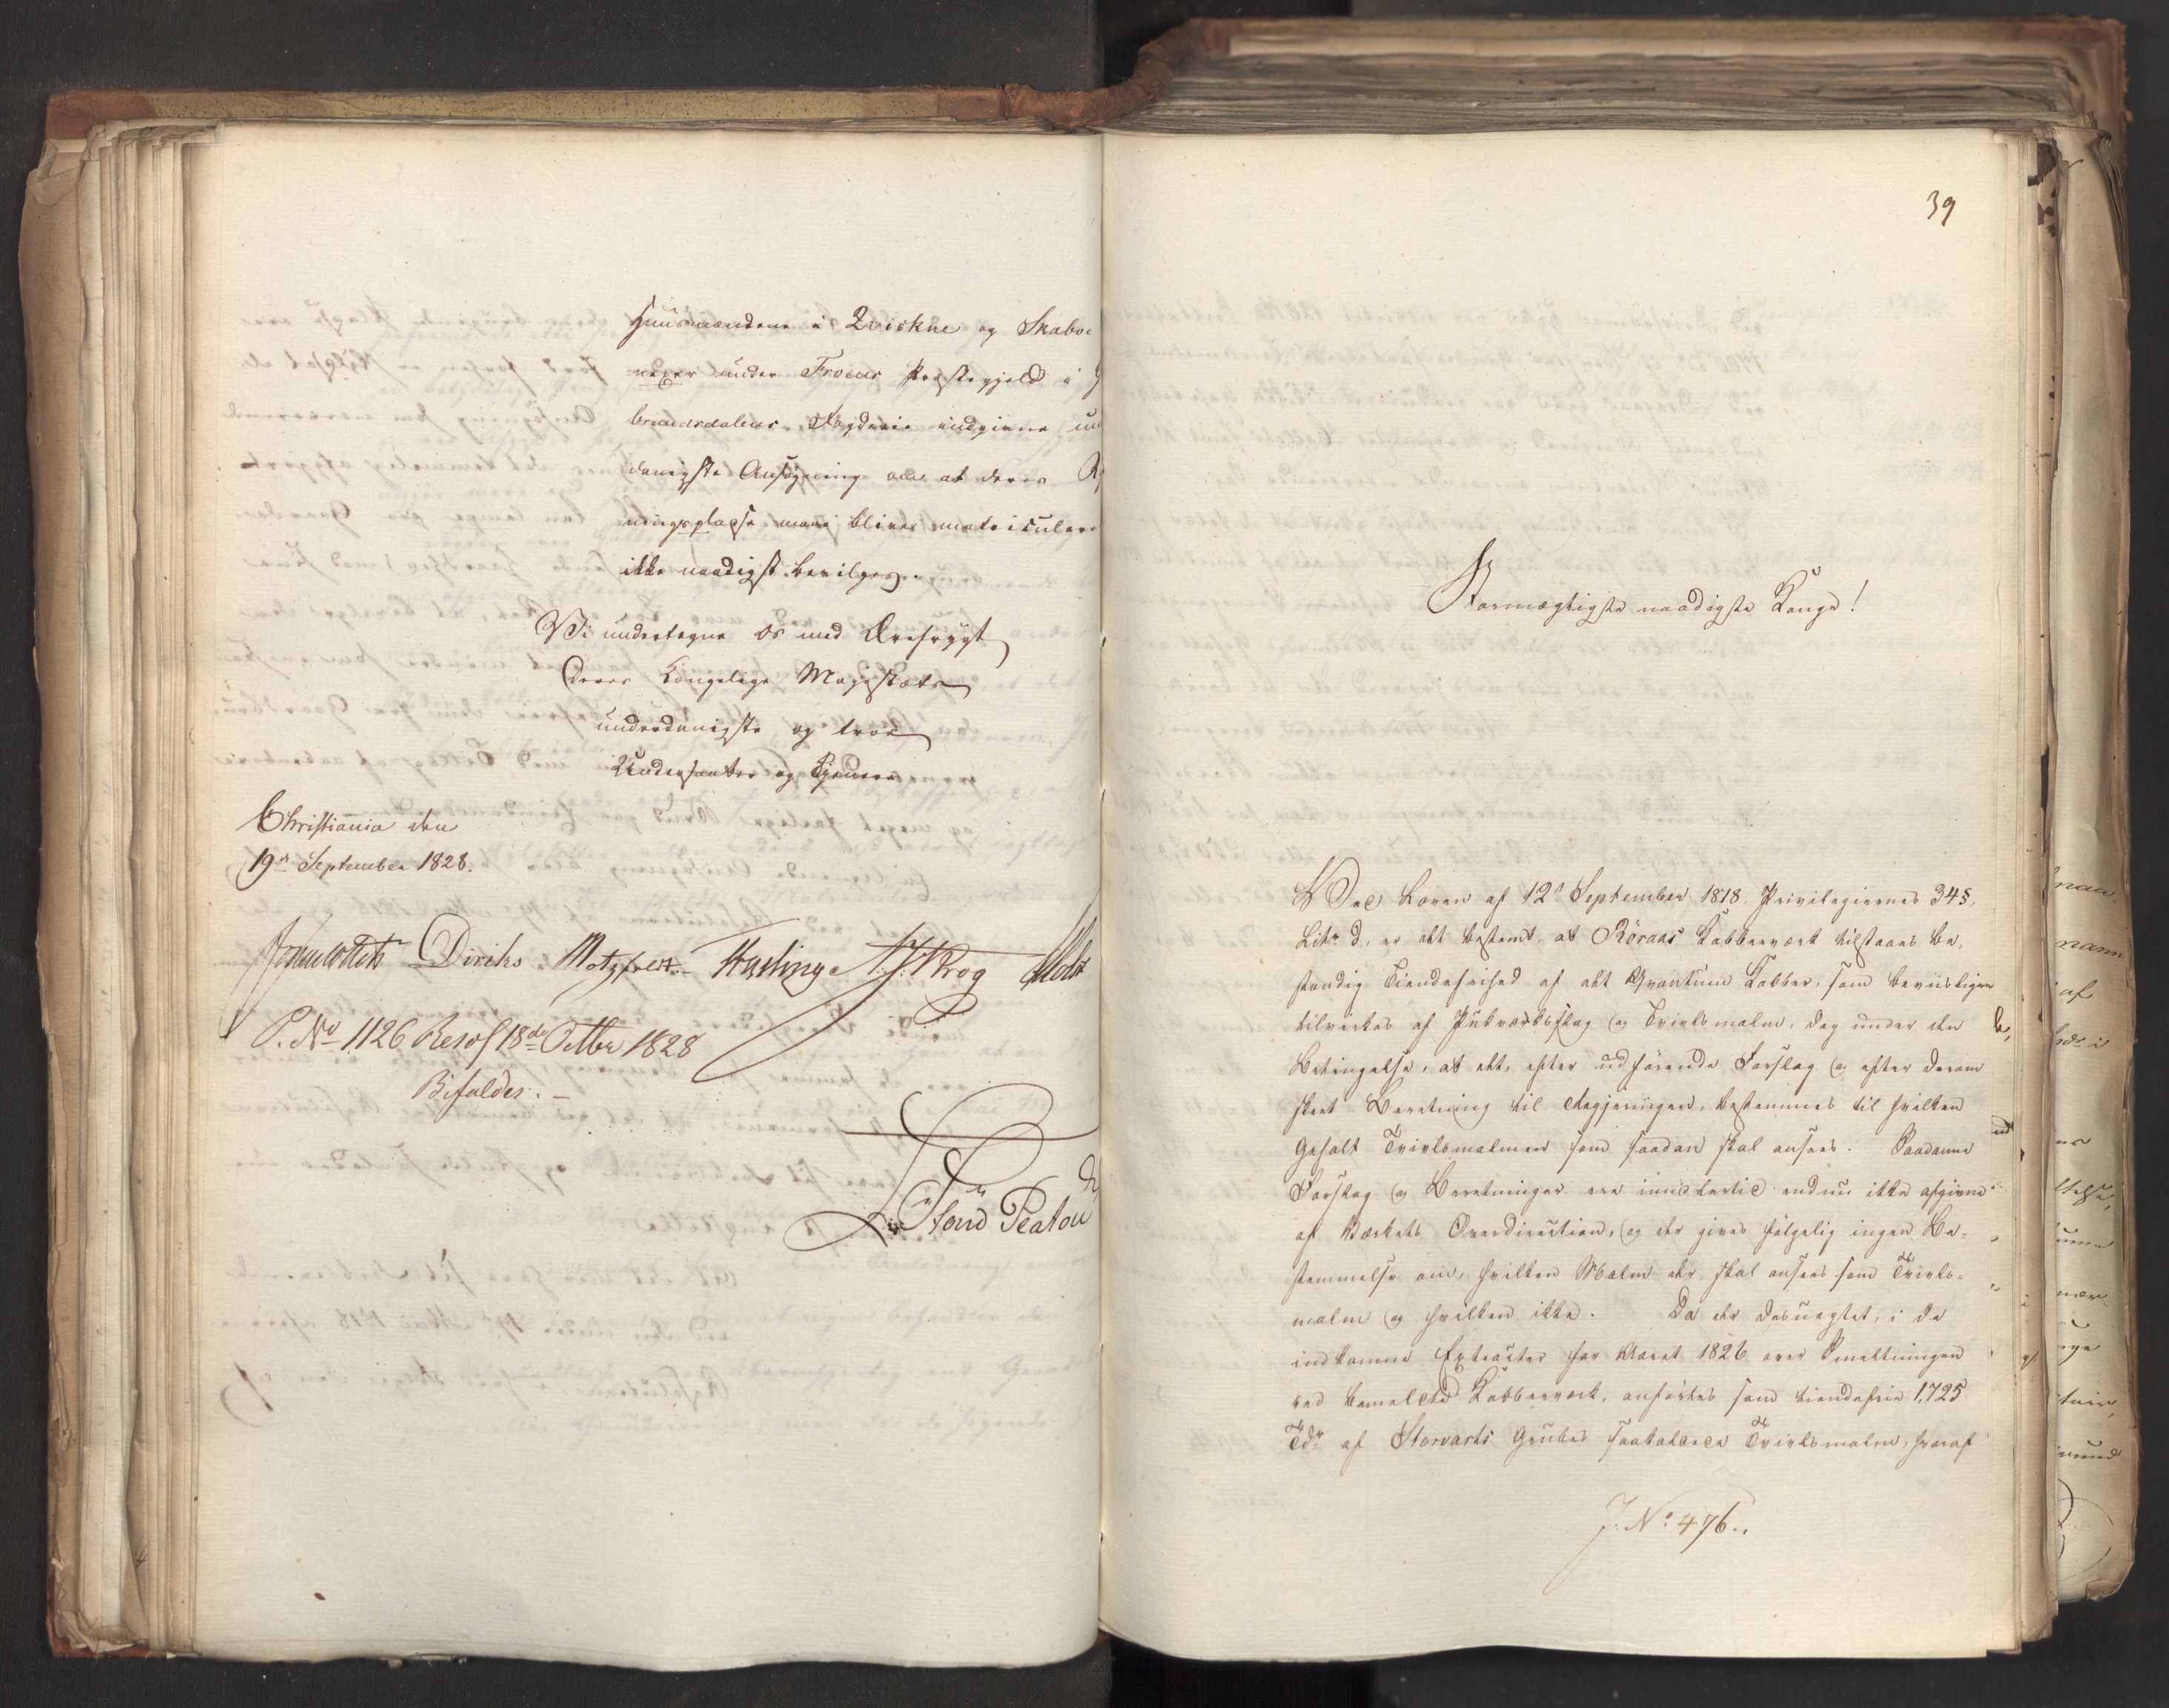 Huusmændene i Qvickne og Skaboe
næxer under Froens Præstegjeld i G
brandsdalens Fogderie indgivne un
danigste Ansøgning om at deres R
ningsplasse maae blive matriculere
ikke naadigst bevilges.
Vi undertegne os med Ærefrygt
Deres Kongelige Majestæts
underdanigste og troe
Undersaatter og Tjenere
Christiania den
19de September 1828.
Diriks Motzfeldt Fasting N. J. Krog
P. No 1126 Resol 18de Octbr 1828
Bifaldes.
39
Stormægtigste naadigste Konge!
Ved Loven af 12te September 1818, Privilegiernes 34 §,
Litr. d, er det bestemt, at Röraas Kobberværk tilstaaes be-
standig Tiendefrihed af det Qvantum Kobber, som beviisligen
tilvirkes af Pukværksslag og Tvivlsmalm, dog under den
Betingelse, at det, efter udførende Forslag og efter derom
skeet Beretning til Regjeringen, bestemmes til hvilken
Gehalt Tvivlsmalmen som saadan skal ansees. Saadanne
Forslag og Beretninger ere imidlertid endnu ikke afgivne
af Værkets Overdirection, og der gives følgelig ingen Be-
stemmelse om, hvilken Malm der skal ansees som Tvivls-
malm og hvilken ikke. Da der desuagtet, i de
indkomne Extracter for Aaret 1826 over Smeltningen
ved bemeldte Kobberværk, anførtes som tiendefrie 1,725
Tdr af Storvarts Grubes saakaldede Tvivlsmalm, hvoraf
J. No 476.